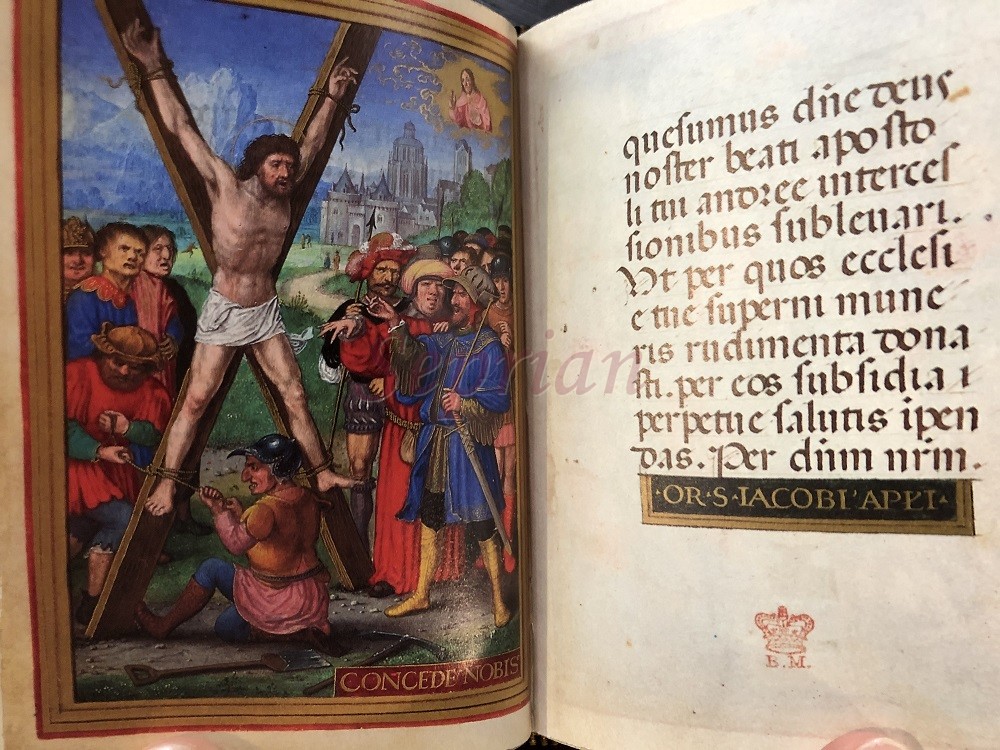 CONCEDE NOBIS
quesumus dñe deus
noster beati aposto
li tui andree interces
sionibus sublevari.
Vt per quos ecclesi
e tue superni mune
ris rudimenta dona
sti. per eos subsidia
perpetue salutis ipen
das. Per dñum nrm.
·OR·S·IACOBI·APLI·
B.M.